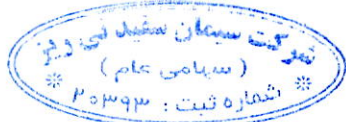 شرکت سیمان سفید نی ریز
(سهامی عام)
شماره ثبت : ۲۰۳۹۳